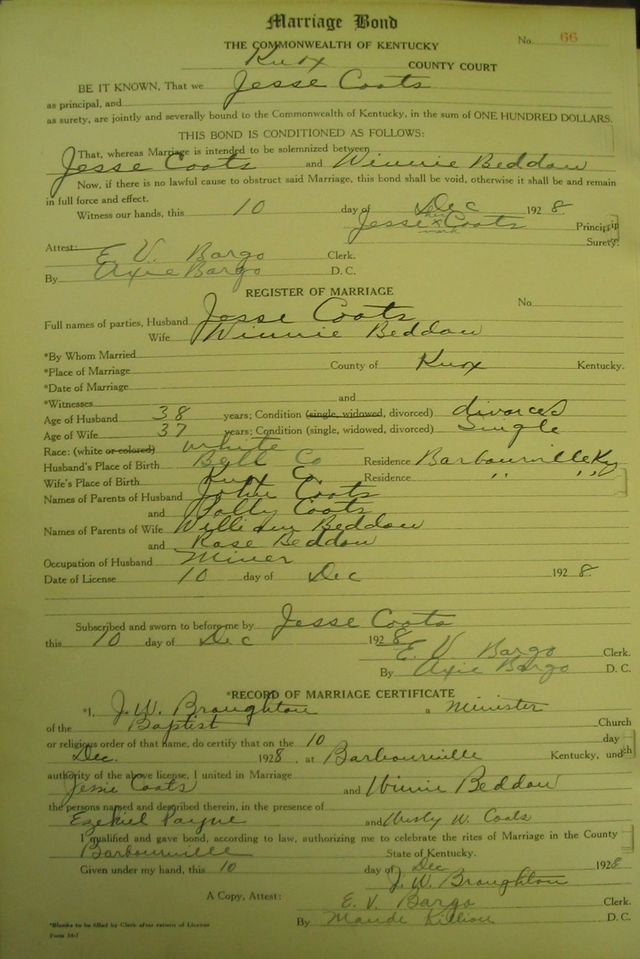 Marriage Bond
No. 66
THE COMMONWEALTH OF KENTUCKY
Knox COUNTY COURT
BE IT KNOWN, That we Jesse Coots
as principal, and
as surety, are jointly and severally bound to the Commonwealth of Kentucky, in the sum of ONE HUNDRED DOLLARS.
THIS BOND IS CONDITIONED AS FOLLOWS:
That, whereas Marriage is intended to be solemnized between
Jesse Coots and Winnie Beddow
Now, if there is no lawful cause to obstruct said Marriage, this bond shall be void, otherwise it shall be and remain
in full force and effect.
Witness our hands, this 10 day of Dec 1928
Jesse his x mark Coots Principal
Surety
Attest: E. V. Bargo Clerk.
By Axie Bargo D. C.
REGISTER OF MARRIAGE
No.
Full names of parties, Husband Jesse Coots
Wife Winnie Beddow
*By Whom Married
*Place of Marriage County of Knox Kentucky.
*Date of Marriage
*Witnesses and
Age of Husband 38 years; Condition (single, widowed, divorced) divorced
Age of Wife 37 years; Condition (single, widowed, divorced) Single
Race: (white or colored) white
Husband's Place of Birth Bell Co Residence Barbourville Ky
Wife's Place of Birth Knox Co. Residence " "
Names of Parents of Husband John Coots
and Polly Coots
Names of Parents of Wife William Beddow
and Rose Beddow
Occupation of Husband Miner
Date of License 10 day of Dec 1928
Subscribed and sworn to before me by Jesse Coots
this 10 day of Dec 1928
E. V. Bargo Clerk.
By Axie Bargo D. C.
*RECORD OF MARRIAGE CERTIFICATE
*I, J. W. Broughton a Minister
of the Baptist Church
or religious order of that name, do certify that on the 10 day
Dec. 1928, at Barbourville Kentucky, under
authority of the above license, I united in Marriage
Jessie Coots and Winnie Beddow
the persons named and described therein, in the presence of
Ezekiel Payne and W. Coots
I qualified and gave bond, according to law, authorizing me to celebrate the rites of Marriage in the County
Barbourville State of Kentucky.
Given under my hand, this 10 day of Dec 1928
J. W. Broughton
A Copy, Attest: E. V. Bargo Clerk.
By Maude Killion D. C.
*Blanks to be filled by Clerk after return of License